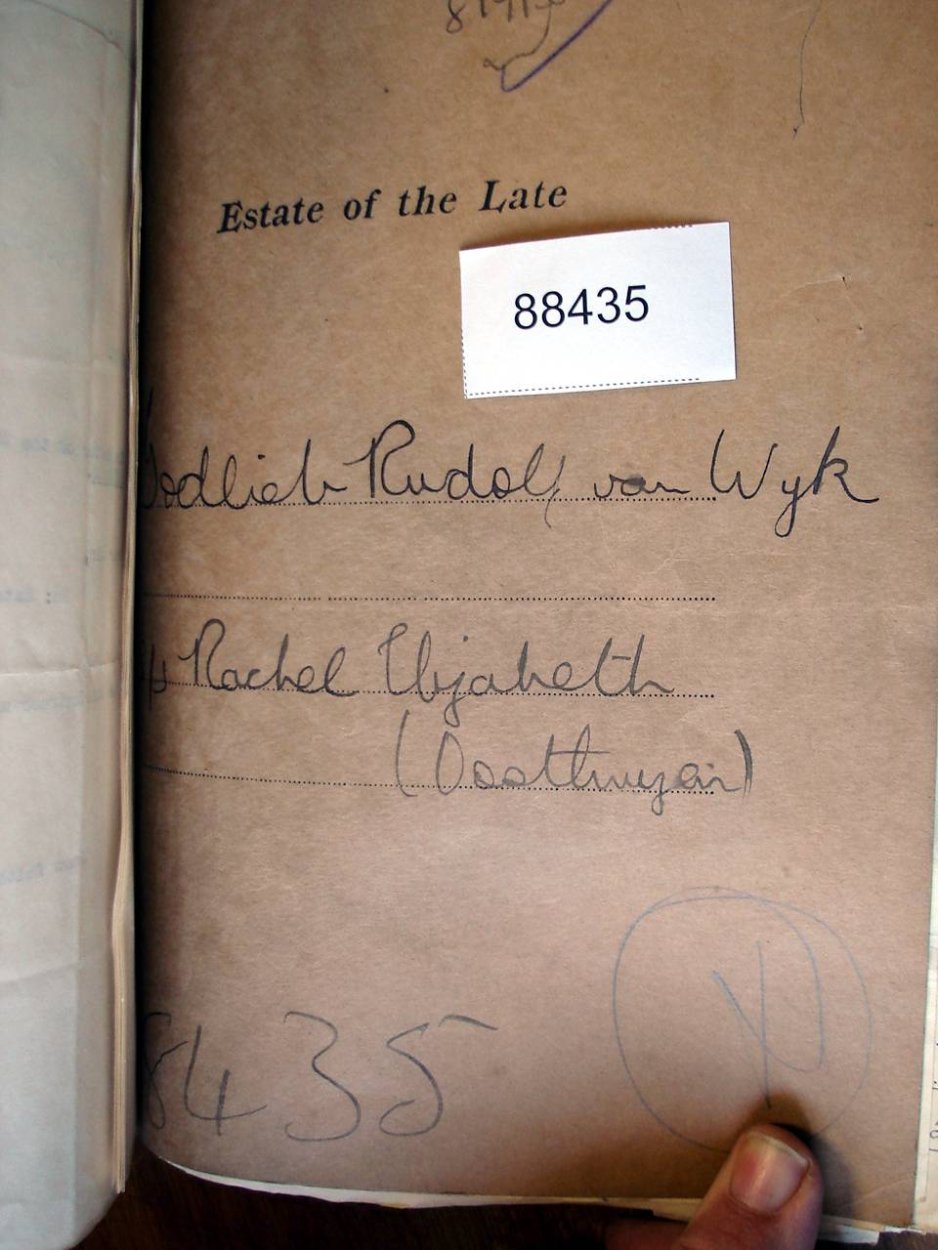 Estate of the Late
88435
Godlieb Rudolf van Wyk
Rachel Elizabeth
(Oosthuyzen)
8435